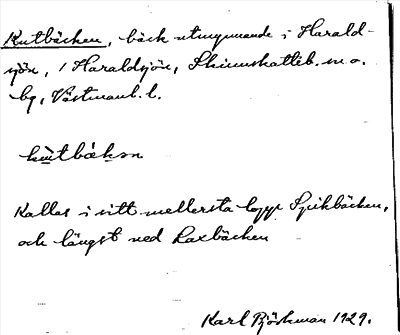 Kutbäcken, bäck utmynnande i Harald-
sjön, i Haraldsjön, Skinnskatteb. sn o.
bg, Västmanl. l.
kutbäkən
Kallas i sitt mellersta lopp Spikbäcken,
och längst ned Laxbäcken
Karl Björkman 1929.